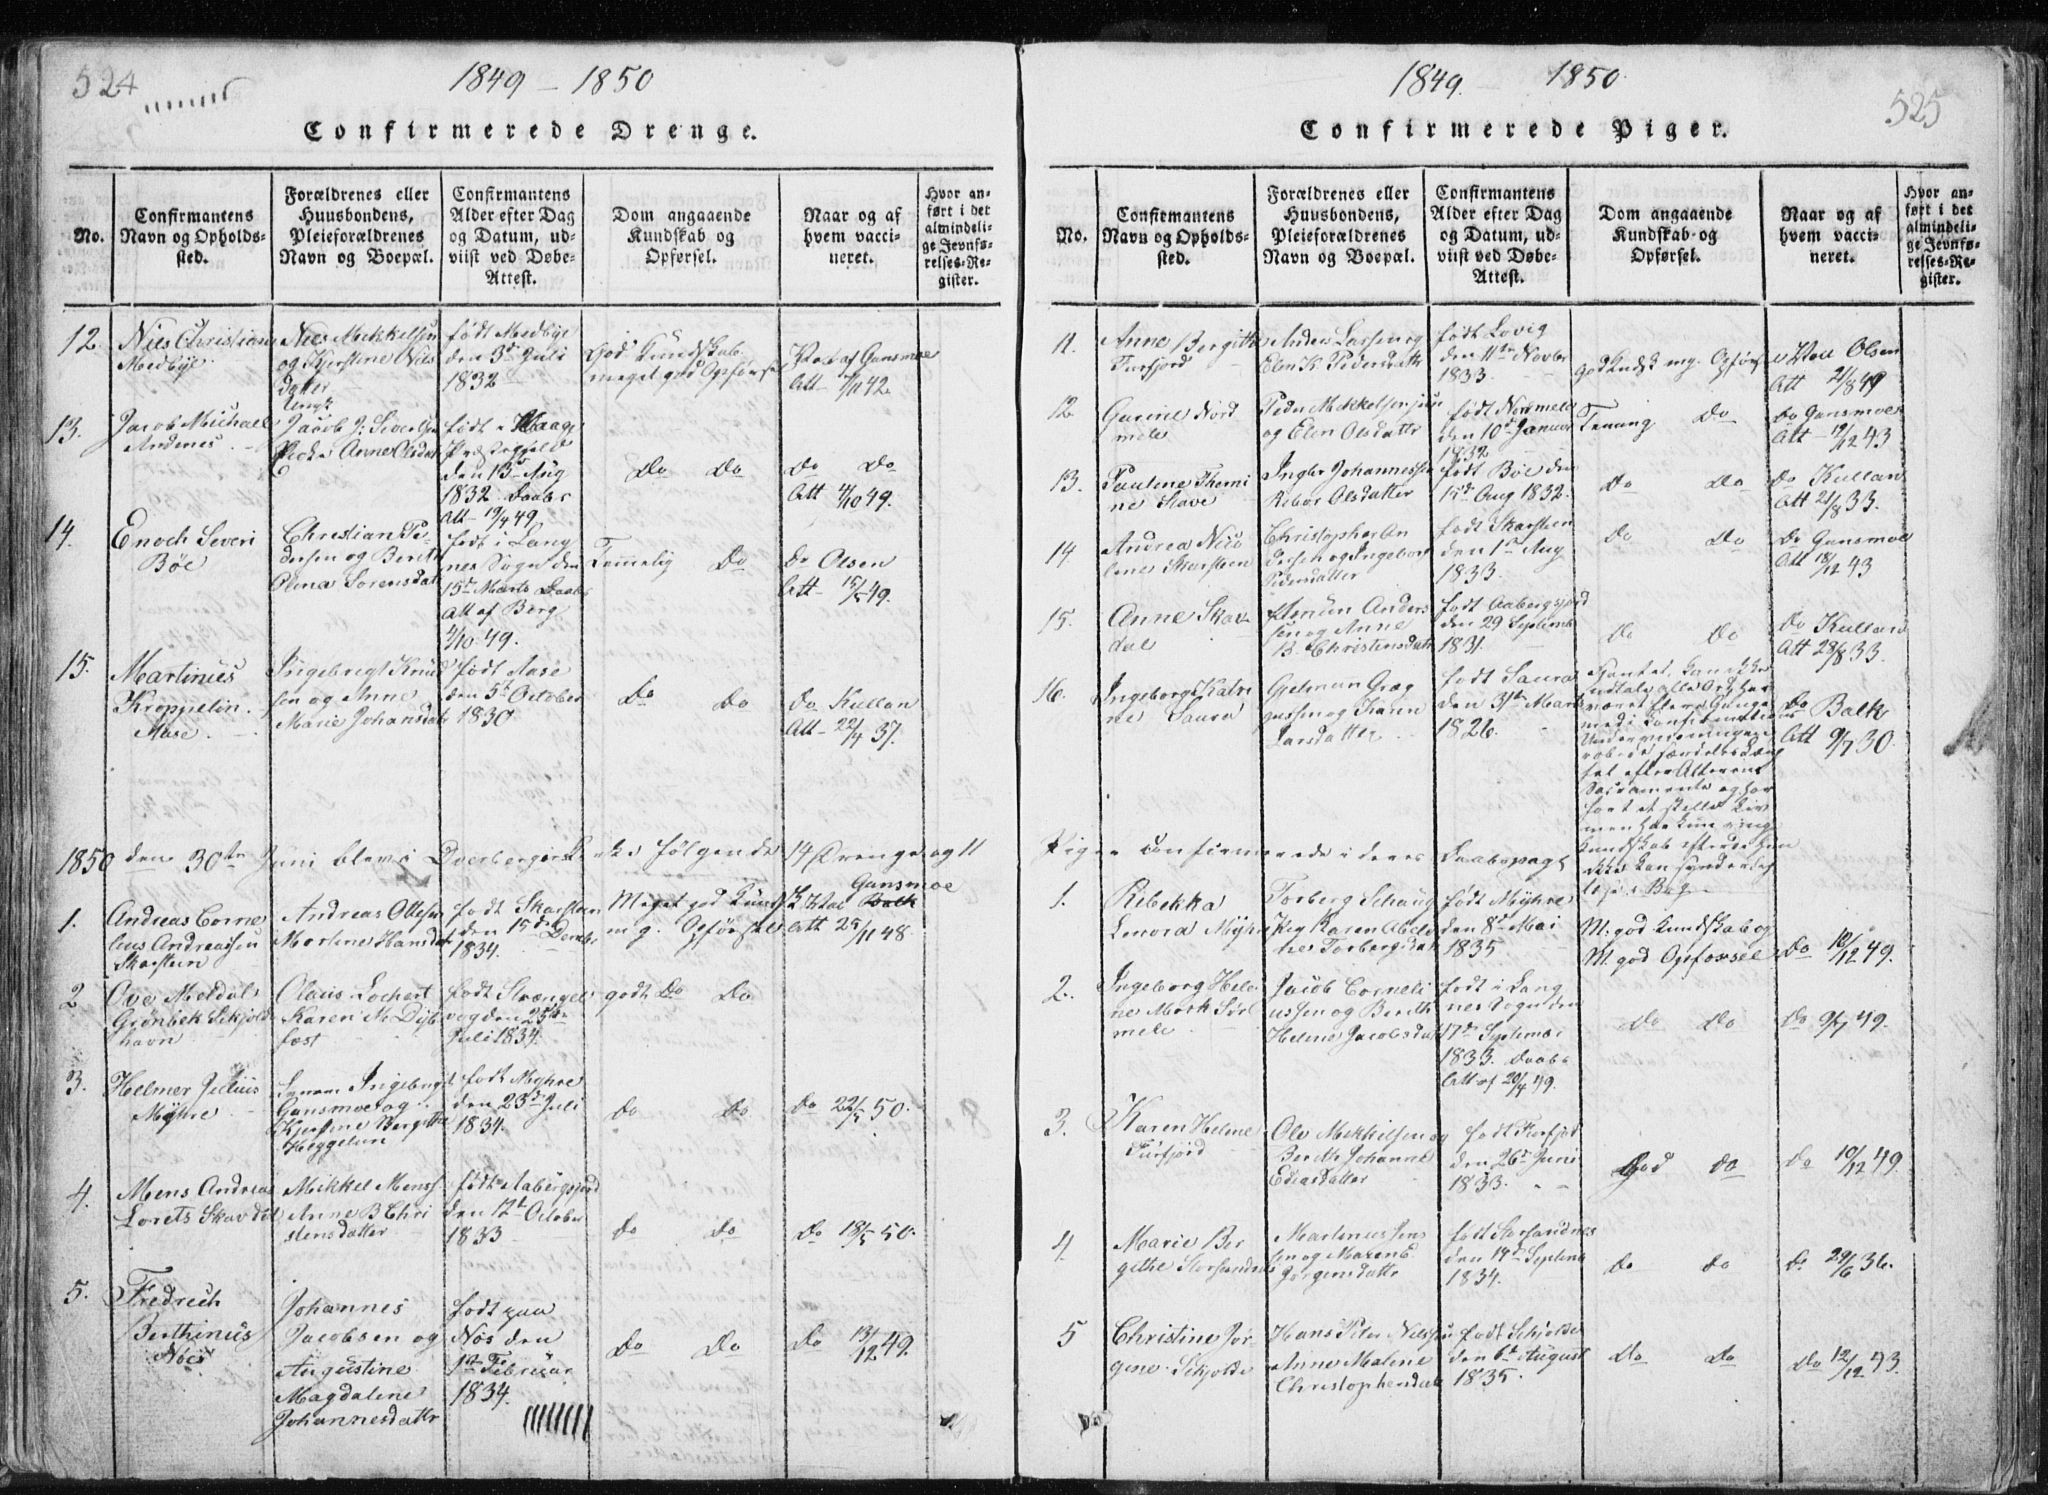 524
1849 - 1850
Confirmerede Drenge.
No.
Confirmantens Navn og Opholds-sted.
Forældrenes eller Huusbondens, Pleieforældrenes Navn og Boepæl.
Confirmantens Alder efter Dag og Datum, ud-viist ved Døbe-Attest.
Dom angaaende Kundskab og Opførsel.
Naar og af hvem vacci-neret.
Hvor an-ført i det almindeli-ge Jevnfø-relses-Re-gister.
12.
Niels Christian
Medbye
Niels Mikkelsen
og Kjerstine Nils
datter
født Medbye
den 3d Juli
1832
God Kundskab
meget god Opførsel
Vac af Gansmoe
Att 42
13.
Jacob Michael
Andenes
Jacob J: Sivertsen
Anne Olsdatt
født
Præstegjeld
den 13d Aug
1832 Daabs
Att 19/4 49
Do Do
Do Do
Att 49.
14.
Enoch Severi
Böe
Christian Pe-
dersen og Berit
Olina Sörensdat
født i Lang
nes Sogn den
15d Marts Daabs
Att af Berg
4/10 49.
Temmelig Do
Do Olsen
Att 15/5 49.
15.
Martinus
Kroppelin
Aase
Ingebregt Knud
sen og Anne
Marie Johansdat
født Aase
den 5t October
1830
Do Do
Do Kullan
Att 22/4 37.
1850 den 30te Juni blev i Dverberg Kirke følgende 14 Drenge og 11
1.
Andreas Corne
lius Andreassen
Skarsteen
Andreas Ottesen
Martine Hansdat
født Skarsteen
den 15de Decbr
1834.
Meget god Kundsk
m g. Opförsel
Vac Gansmoe
Att 25/11 48.
2
Ove Meldal
Grönbek Skjolde
havn
Claus Lochert
Karen M. Dyb
fest
født Strængel
vog den 25de
Juli 1834.
godt Do Do
3.
Helmer Julius
Myhre
Sören Ingebregt
Gansmoe og
Kjerstine Bergitte
Heggelun
født Myhre
den 23d Juli
1834.
Do Do
Do 22/5 50.
4.
Mens Andreas
Lorets Skavdal
Mikkel Mens
Anne B Chri
stensdatter
født Aabergsjord
den 12t October
1833
Do Do
Do 18/5 50.
5.
Fredrech
Berthinus
Nöes
Johannes
Jacobsen og
Augustine
Magdalene
Johannesdattr
født paa
Nös den
1st Februar
1834.
Do Do
Do 13/12 49.
1849. 1850.
525
Confirmerede Piger.
No.
Confirmantens Navn og Opholds-sted.
Forældrenes eller Huusbondens, Pleieforældrenes Navn og Boepæl.
Confirmantens Alder efter Dag og Datum, ud-viist ved Døbe-Attest.
Dom angaaende Kundskab og Opførsel.
Naar og af hvem vacci-neret.
Hvor an-ført i det almindeli-ge Jevnfø-relses-Re-gister.
11.
Anne Bergitte
Furfjord
Anders Larsen og
Elen K. Pedersdatt
født Lovig
den 11te Novbr
1833.
god Kundsk mg. Opförs
Vac Olsen
Att 21/8 49
12.
Gurine Nord
mele
Peder Mekkelsen
og Elen Olsdattr
født Nordmele
den 10d Januar
1832
Do
Do Gansmoe
Att 19/12 43
13.
Pauline Themi
ne Stave
Johannessen
Olsdatter
født Böe den
Aug 1832.
Do Do
Do Kullan
Att 21/8 33.
14
Andrea Nico
line Skarsteen
Christopher An
dersen og Ingeborg
Pedersdatter
født Skarsteen
den 1st Aug
1833.
Do Do
Do Gansmoe
Att 18/12 43
15.
Anne Skav
dal
Amun Anders
sen og Anne
B. Christensdatt
født Aabergsjord
den 29 Septemb
1831.
Do Do
Do Kullan
Att 28/8 33.
16.
Ingeborg Katri
ne Saura
Gjelmun Greg
gussen og Karen
Larsdatter
født Saura
den 31te Marts
1826.
kan ikke
udtale alle Ord har
været flere Gange
med i Confirmations
Undervisningen
efter Alterens
Sacramente og har
ført et stille Liv
men har kun ringe
Kundskab efterdi hun
ikke kan synderlig
læse i Bog.
Do Balk
Att 9/7 30.
Piger confirmerede i deres Daabspagt
1.
Rebekka
Lenora Myhre
Torberg Schaug
og Karen Abelo
ne Torbergsdat
født Myhre
den 8d Mai
1835
M. god Kundskab og
M. god Opforsel
Do 18/12 49.
2.
Ingeborg Hele
ne Mork Sörl
mele
Jacob Corneli
ussen og Berith
Helene Jacobsdatt
født i Lang
nes Sogn den
17d September
1833. Daabs
Att af 20/4 49.
Do Do
Do 9/7 49.
3.
Karen Helene
Furfjord
Ole Mekkelsen og
Berith Johanne
Ediasdatter
født Forfjord
den 26t Juni
1833.
God Do
Do 19/12 49.
4.
Marie Ber
githe Storsandnes
Martinus Jens
sen og Maren E
Jörgensdattr
født Storsandnes
den 14d Septemb
1834.
Do Do
Do 29/6 36.
5
Christine Jör
gene Skjolde
Hans Peter Nilssen
Anne Malene
Christophersdatt
født Skjolde
den 6d August
1835.
Do Do
Do 12/12 43.